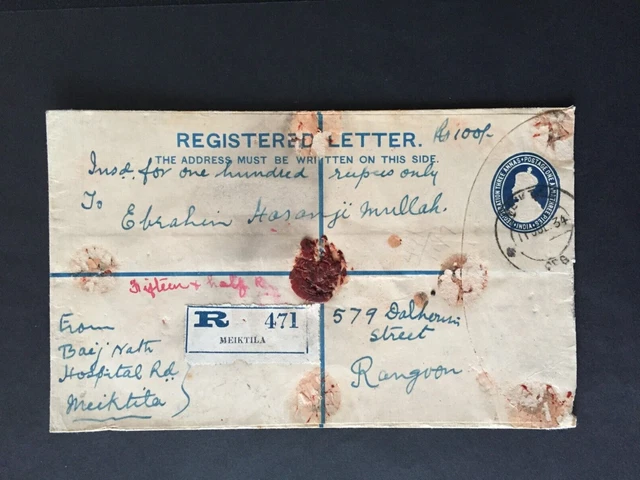 REGISTERED LETTER.
Rs 100/-
THE ADDRESS MUST BE WRITTEN ON THIS SIDE.
Insd. for one hundred rupees only
To
Ebrahim Hasanji Mullah.
Fifteen & half
R 471
MEIKTILA
579 Dalhousie
Street
Rangoon
From
Baij Nath
Hospital Rd.
Meiktila